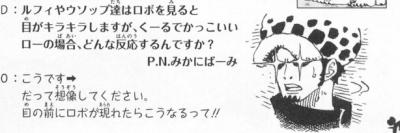 D：ルフィやウソップ達はロボを見ると
目がキラキラしますが、くーるでかっこいい
ローの場合、どんな反応するんですか？
P.N.みかにばーみ
O：こうです➡
だって想像してください。
目の前にロボが現れたらこうなるって!!